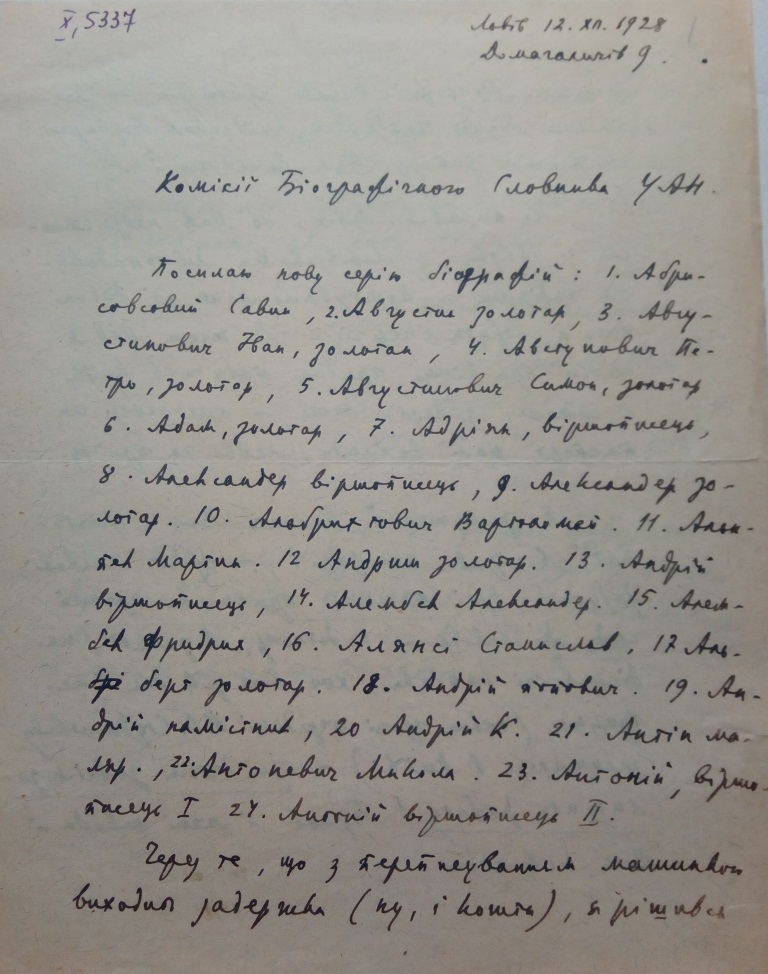 X, 5337
Львів 12. XII. 1928
Домагаличів 9.
Комісії Біографічного Словника УАН.
Посилаю нову серію біографій: 1. Абри-
совский Савин, 2. Августин золотар, 3. Авгу-
стинович Іван, золотар, 4. Августинович Пе-
тро, золотар, 5. Августинович Симон, золотар
6. Адам, золотар, 7. Адріян, віршописець,
8. Александер віршописець, 9. Александер зо-
лотар. 10. Вартоломей. 11.
Мартин. 12 Андриш золотар. 13. Андрій
віршописець, 14. Алембек Александер. 15. Алем-
бек Фридрих, 16. Алянсі Станислав, 17 Аль-
берт золотар. 18. Андрій попович. 19. Ан-
дрій намісник, 20 Андрій К. 21. Антін ма-
ляр., 22. Антоневич Микола. 23. Антоній, віршо-
писець I 24. Антоній віршописець II.
Через те, що з переписуванням машинкою
виходить задержка (ну, і кошти), я рішився